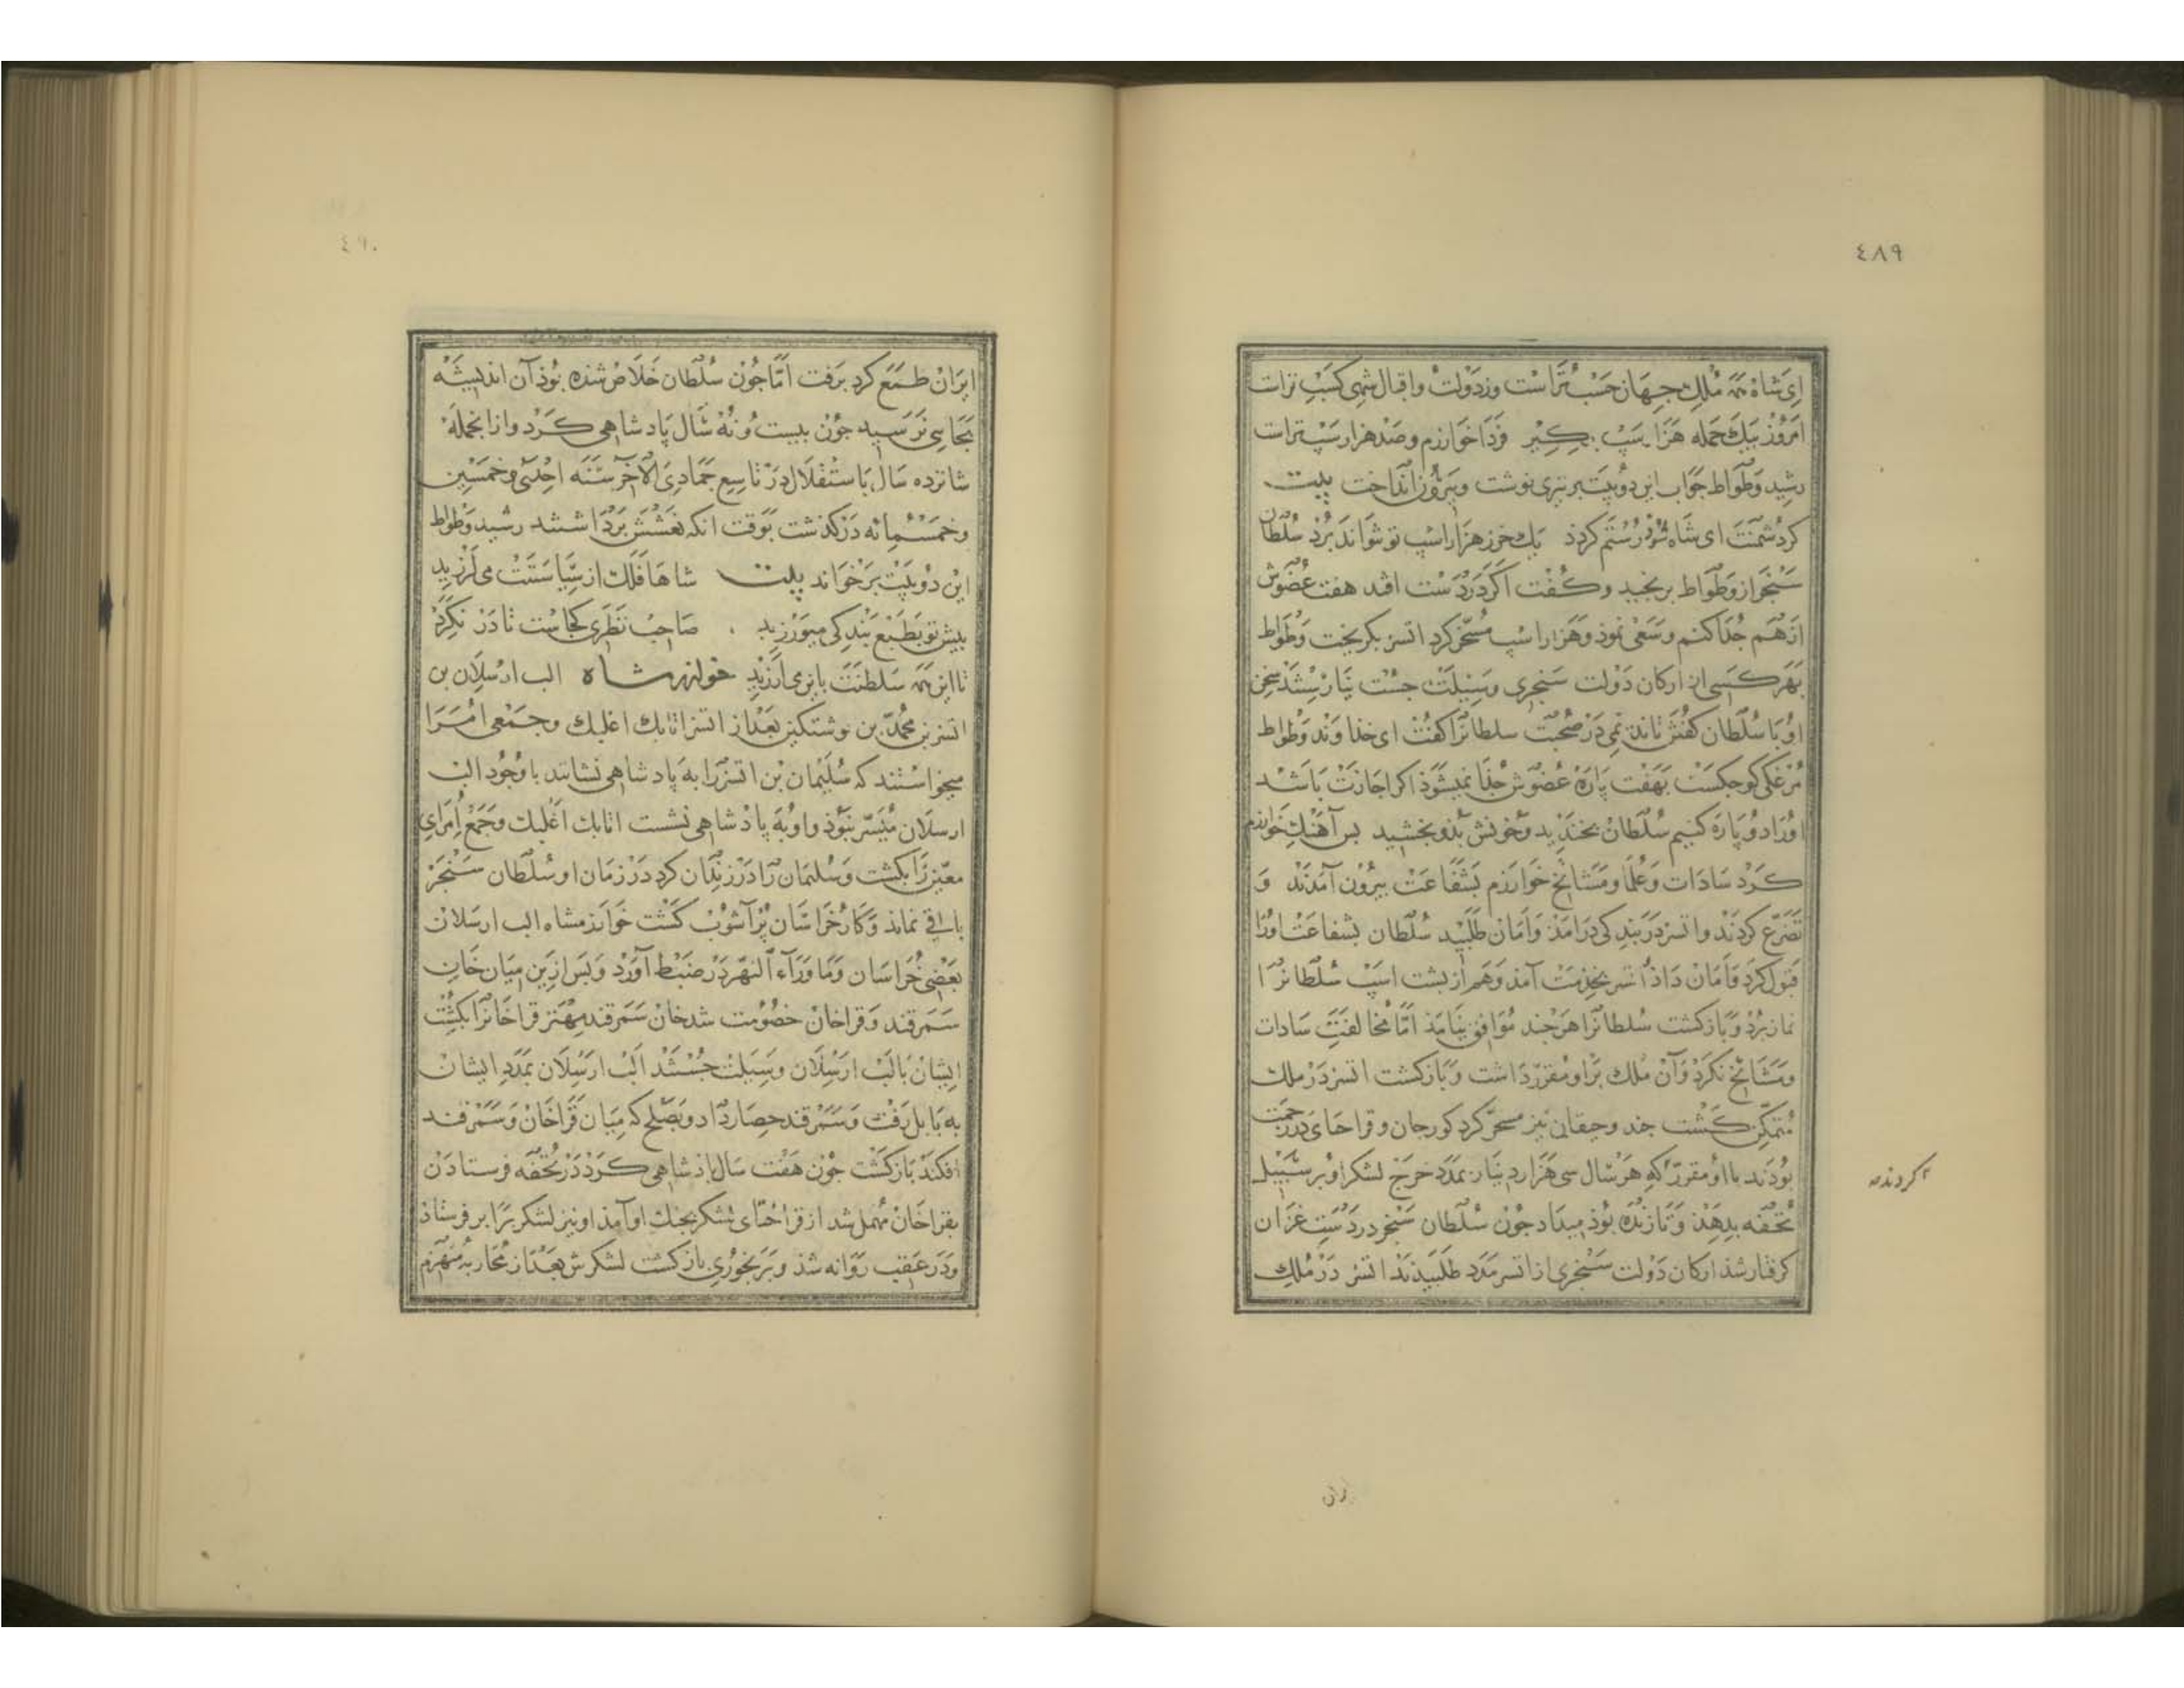 ٤٨٩
ای شاه همه ملک جهان حسب تراست وز دولت واقبال شهی کسب تراست
امروز بیک حمله هزار اسپ بکیر فردا خوارزم وصد هزار اسپ تراست
رشید وطواط جواب این دو بیت بر تیری نوشت وبیرون انداخت بیت
کر دشمنت ای شاه شود رستم کرد یک خر ز هزار اسپ تو نتواند برد سلطان
سنجر از وطواط برنجید وکفت اکر در دست افتد هفت عضوش
از هم جدا کنم وسعی نمود وهزار اسپ مسخر کرد اتسز بکریخت وطواط
بهر کسی از ارکان دولت سنجری وسیلت جست نیارستند سخن
او با سلطان کفتن تا ندیمی در صحبت سلطانرا کفت ای خداوند وطواط
مرغکی کوچکست بهفت پاره عضوش جدا نمیشود اکر اجازت باشد
اورا دو پاره کنیم سلطان بخندید وخونش بدو بخشید بس آهنک خوارزم
کرد سادات وعلما ومشایخ خوارزم بشفاعت بیرون آمدند و
تضرع کردند واتسز در بندکی درامد وامان طلبید سلطان بشفاعت اورا
قبول کرد وامان داد اتسز بخدمت آمد وهم از بشت اسپ سلطانرا
نماز برد وبازکشت سلطانرا هرچند موافق نیامد امّا مخالفت سادات
ومشایخ نکرد وآن ملک برو مقرر داشت وبازکشت اتسز در ملک
متمکن کشت جند وجقان نیز مسخر کرد کورجان وقراختای در زحمت
بودند با او مقرر که هر سال سی هزار دینار بمدد خرج لشکر او بر سبیل
کردند
تحفه بدهند وتا زنده بود میداد جون سلطان سنجر در دست غزان
کرفتار شد ارکان دولت سنجری از اتسز مدد طلبیدند اتسز در ملک
ران
٤٩٠
ایران طمع کرد برفت امّا جون سلطان خلاص شده بود آن اندیشه
بجایی نرسید جون بیست ونه سال پادشاهی کرد وازانجمله
شانزده سال باستقلال در تاسع جمادی الآخر سنه احدی وخمسین
وخمسمائه درکذشت بوقت انکه نعشش برداشتند رشید وطواط
این دو بیت برخواند بیت شاها فلک از سیاستت می لرزید
بیش تو بطبع بندکی میورزید صاحب نظری کجاست تا در نکرد
تا این همه سلطنت باین می ارزید خوارزمشاه الب ارسلان بن
اتسز بن محمد بن نوشتکین بعد از اتسز اتابک اغلبک وجمعی امرا
میخواستند که سلیمان بن اتسزرا به پادشاهی نشانند باوجود الب
ارسلان میسر نبود واو به پادشاهی نشست اتابک اغلبک وجمع امرای
معین را بکشت وسلیمان را در زندان کرد در زمان او سلطان سنجر
باقی نماند وکار خراسان پر آشوب کشت خوارزمشاه الب ارسلان
بعضی خراسان وماوراء النهر در ضبط آورد وبس ازین میان خان
سمرقند وقراخان خصومت شد خان سمرقند مهتر قراخانرا بکشت
ایشان بالب ارسلان وسیلت جستند الب ارسلان بمدد ایشان
به بابل رفت وسمرقند حصار داد وبصلح که میان قراخان وسمرقند
افکند بازکشت جون هفت سال پادشاهی کرد در تحفه فرستادن
بقراخان مهمل شد از قراختای لشکر بجنک او آمد او نیز لشکر برابر فرستاد
ودر عقب روانه شد وبرنجوری بازکشت لشکرش بعد از محاربه منهزم